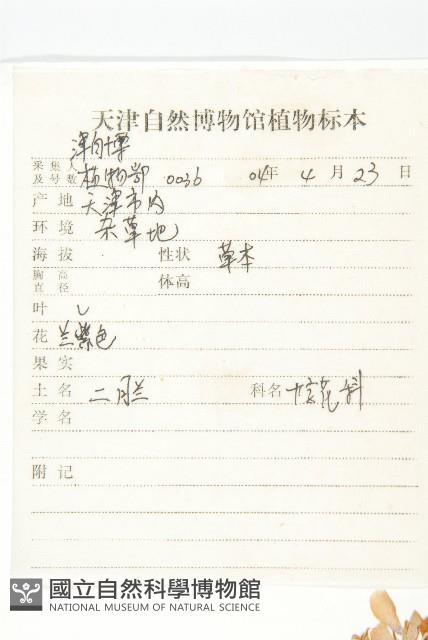 天津自然博物馆植物标本
津自博
采集人及号数 植物部 0036 04年 4月 23日
产地 天津市内
环境 杂草地
海拔 性状 草本
胸高直径 体高
叶
花 兰紫色
果实
土名 二月兰 科名 十字花科
学名
附记
國立自然科學博物館
NATIONAL MUSEUM OF NATURAL SCIENCE